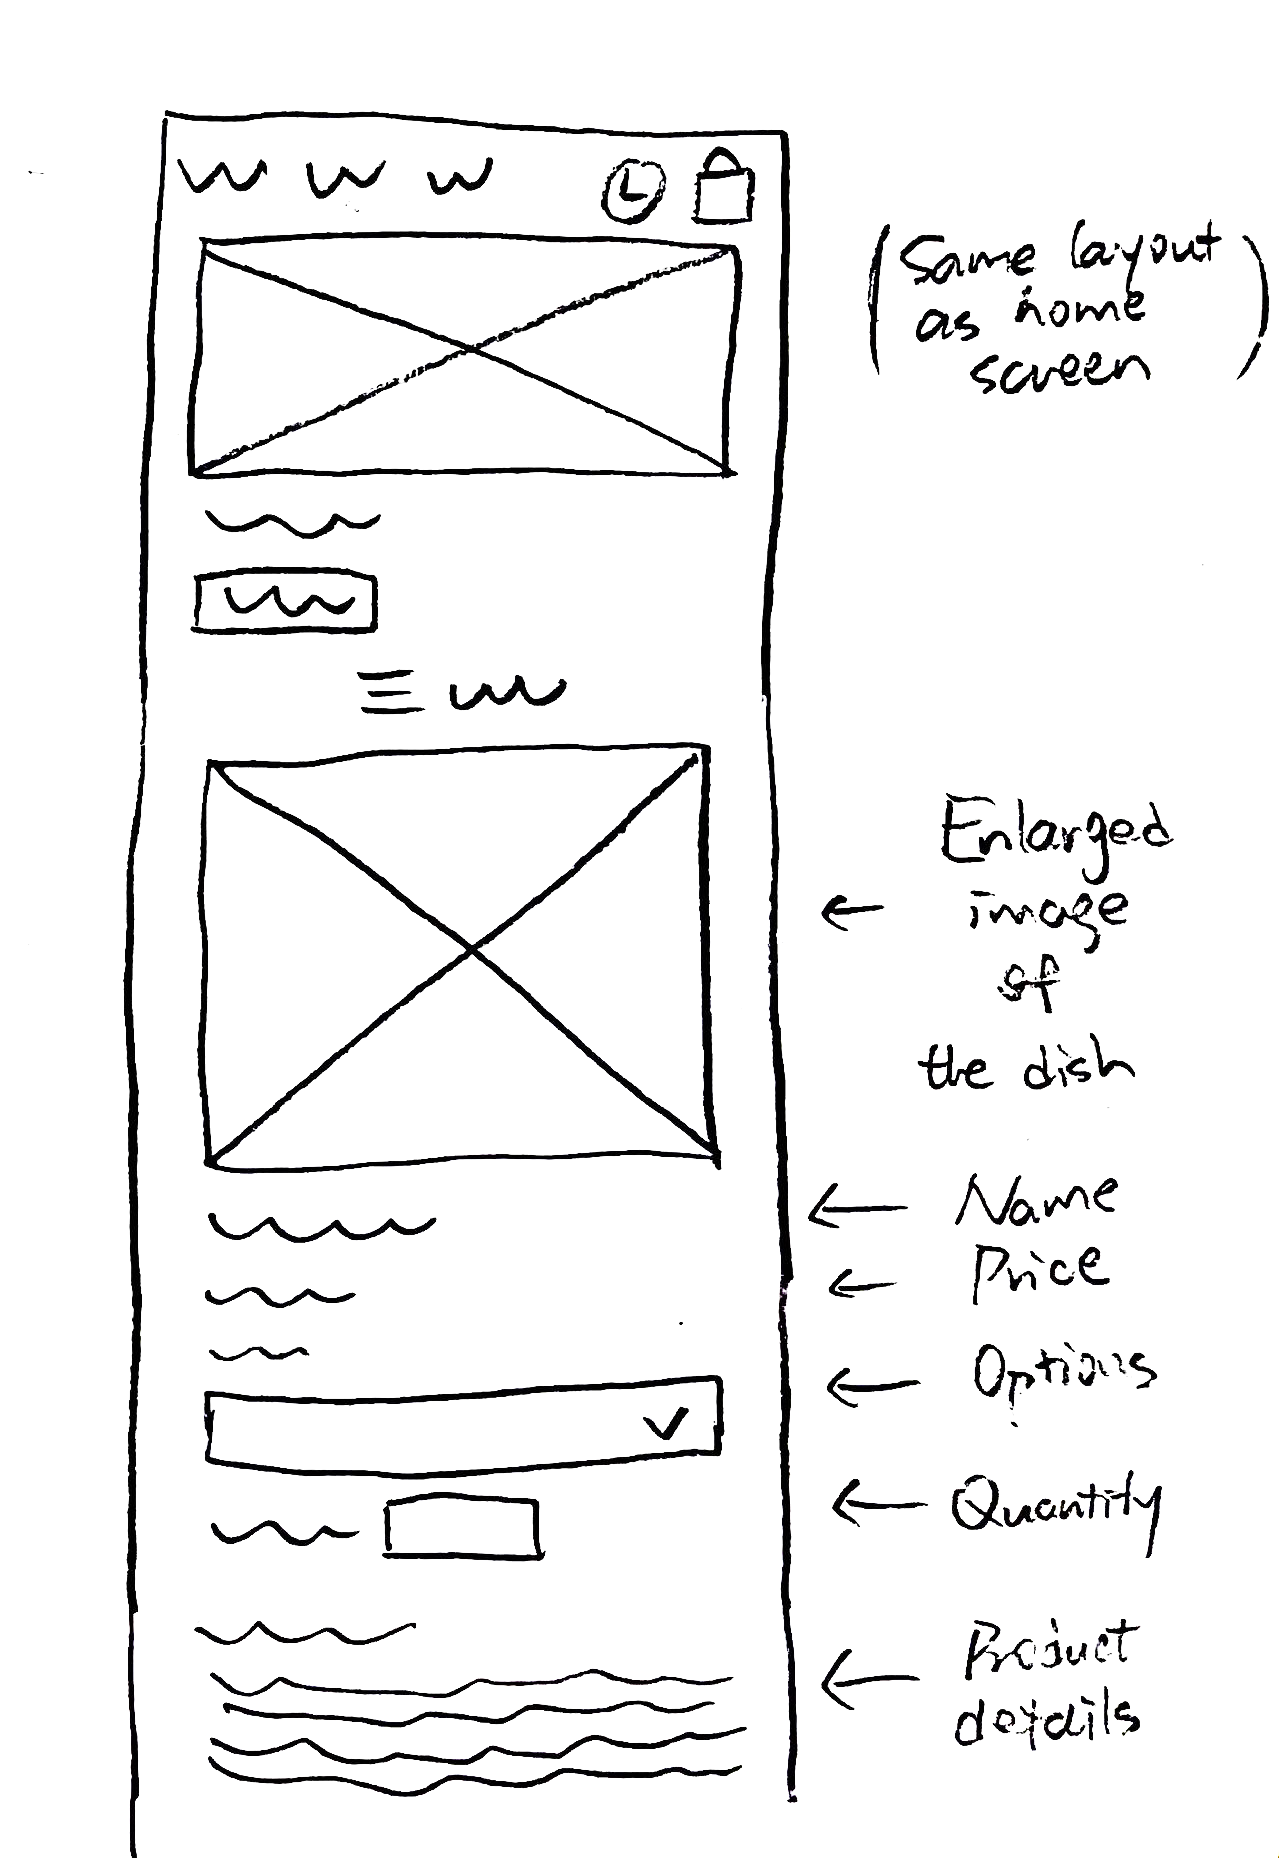 (Same layout
as home
screen)
← Enlarged
image
of
the dish
← Name
← Price
← Options
← Quantity
← Product
details